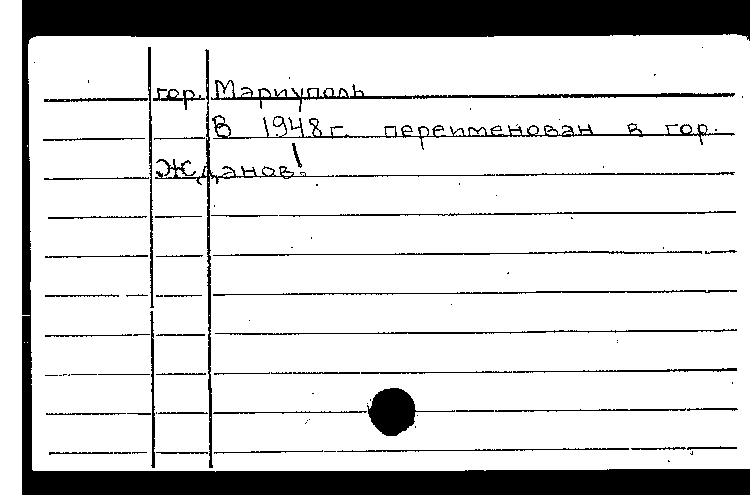 гор. Мариуполь
В 1948 г. переименован в гор.
Жданов!